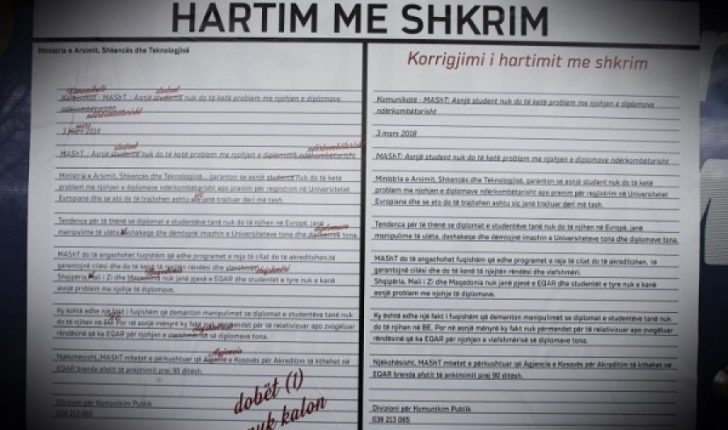 HARTIM ME SHKRIM
Ministria e Arsimit, Shkencës dhe Teknologjisë
Komunikatë - MASHT: Asnjë studenta nuk do të ketë problem me njohjen e diplomave
3 mars 2018
MASHT: Asnjë studenta nuk do të ketë problem me njohjen e diplomave
Ministria e Arsimit, Shkencës dhe Teknologjisë, garanton se asnjë student nuk do të ketë
problem me njohjen e diplomave ndërkombëtarisht apo pranim për regjistrim në Universitetet
Evropiane dhe se ato do të trajtohen ashtu siç janë trajtuar deri më tash.
Tendenca për të thënë se diplomat e studentëve tanë nuk do të njihen në Evropë, janë
manipulime të ulëta, dashakeqe dhe dëmtojnë imazhin e Universiteteve tona dhe diplomave tona.
MASHT do të angazhohet fuqishëm që edhe programet e reja të cilat do të akreditohen, të
garantojnë cilësi dhe do të kenë të njëjtën rëndësi dhe
Shqipëria, Mali i Zi dhe Maqedonia nuk janë pjesë e EQAR dhe studentët e tyre nuk e kanë
asnjë problem me njohjen e diplomave.
Ky është edhe një fakt i fuqishëm që demanton manipulimet se diplomat e studentëve tanë nuk
do të njihen në BE. Por në asnjë mënyrë ky fakt nuk përmendet për të relativizuar apo zvogëluar
rëndësinë që ka EQAR në vlefshmërinë e njohjen e diplomave.
Njëkohësisht, MASHT mbetet e përkushtuar që Agjencia e Kosovës për Akreditim të kthehet në
EQAR brenda afatit të ankimimit prej 90 ditësh.
Divizioni për Komunikim Publik
038 213 065
dobët (1)
nuk kalon
Korrigjimi i hartimit me shkrim
Komunikatë - MASHT: Asnjë student nuk do të ketë problem me njohjen e diplomave
ndërkombëtarisht
3 mars 2018
MASHT: Asnjë student nuk do të ketë problem me njohjen e diplomave ndërkombëtarisht
Ministria e Arsimit, Shkencës dhe Teknologjisë, garanton se asnjë student nuk do të ketë
problem me njohjen e diplomave ndërkombëtarisht apo pranim për regjistrim në Universitetet
Evropiane dhe se ato do të trajtohen ashtu siç janë trajtuar deri më tash.
Tendenca për të thënë se diplomat e studentëve tanë nuk do të njihen në Evropë, janë
manipulime të ulëta, dashakeqe dhe dëmtojnë imazhin e Universiteteve tona dhe diplomave
tona.
MASHT do të angazhohet fuqishëm që edhe programet e reja të cilat do të akreditohen, të
garantojnë cilësi dhe do të kenë të njëjtën rëndësi dhe vlefshmëri.
Shqipëria, Mali i Zi dhe Maqedonia nuk janë pjesë e EQAR dhe studentët e tyre nuk e kanë
asnjë problem me njohjen e diplomave.
Ky është edhe një fakt i fuqishëm që demanton manipulimet se diplomat e studentëve tanë nuk
do të njihen në BE. Por në asnjë mënyrë ky fakt nuk përmendet për të relativizuar apo zvogëluar
rëndësinë që ka EQAR në vlefshmërinë e njohjen e diplomave.
Njëkohësisht, MASHT mbetet e përkushtuar që Agjencia e Kosovës për Akreditim të kthehet në
EQAR brenda afatit të ankimimit prej 90 ditësh.
Divizioni për Komunikim Publik
038 213 065